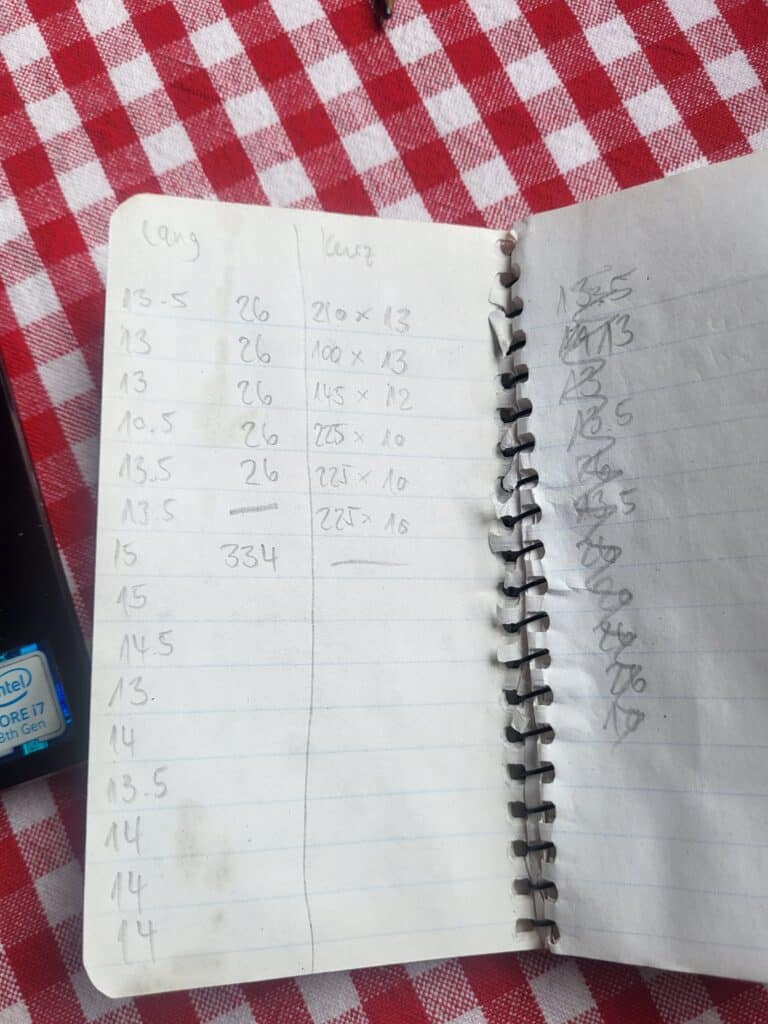 Lang Kurz
13.5 26 210 × 13
13 26 100 × 13
13 26 145 × 12
10.5 26 225 × 10
13.5 26 225 × 10
13.5 — 225 × 10
15 334 —
15
14.5
13.
14
13.5
14
14
14
13.5
13
13
13.5
26
13.5
10
intel
CORE i7
8th Gen